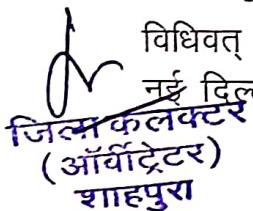 विधिवत्
नई दिल
जिला कलक्टर
(ऑर्वीट्रेटर)
शाहपुरा